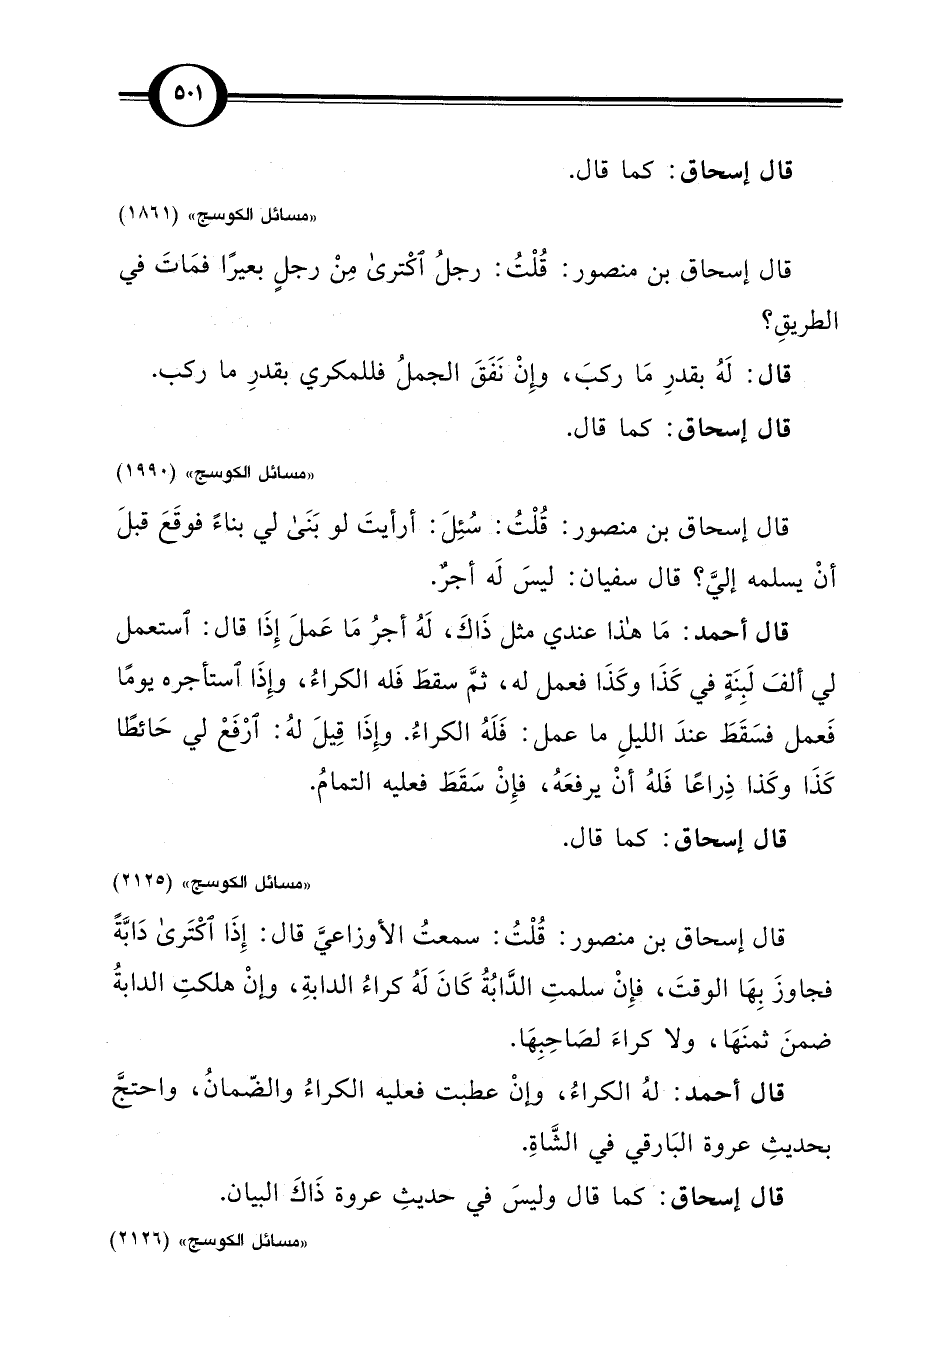 ٥٠١
قال إسحاق: كما قال.
«مسائل الكوسج» (١٨٦١)
قال إسحاق بن منصور: قُلْتُ: رجلُ ٱكْترىٰ مِنْ رجلٍ بعيرًا فمَاتَ في
الطريقِ؟
قال: لَهُ بقدرِ مَا ركبَ، وإنْ نَفَقَ الجملُ فللمكري بقدرِ ما ركب.
قال إسحاق: كما قال.
«مسائل الكوسج» (١٩٩٠)
قال إسحاق بن منصور: قُلْتُ: سُئِلَ: أرأيتَ لو بَنَىٰ لي بناءً فوقَعَ قبلَ
أنْ يسلمه إليَّ؟ قال سفيان: ليسَ لَه أجرٌ.
قال أحمد: مَا هٰذا عندي مثل ذَاكَ، لَهُ أجرُ مَا عَملَ إذَا قال: ٱستعمل
لي ألفَ لَبِنَةٍ في كَذَا وكَذَا فعمل له، ثمَّ سقطَ فله الكراءُ، وإذَا ٱستأجره يومًا
فَعمل فسَقَطَ عندَ الليلِ ما عمل: فَلَهُ الكراءُ. وإذَا قِيلَ لهُ: ٱرْفَعْ لي حَائطًا
كَذَا وكَذا ذِراعًا فَلهُ أنْ يرفعَهُ، فإنْ سَقَطَ فعليه التمامُ.
قال إسحاق: كما قال.
«مسائل الكوسج» (٢١٢٥)
قال إسحاق بن منصور: قُلْتُ: سمعتُ الأوزاعيَّ قال: إذَا ٱكْتَرىٰ دَابَّةً
فجاوزَ بِهَا الوقتَ، فإنْ سلمتِ الدَّابَّةُ كَانَ لَهُ كراءُ الدابةِ، وإنْ هلكتِ الدابةُ
ضمنَ ثمنَهَا، ولا كراءَ لصَاحِبِهَا.
قال أحمد: لهُ الكراءُ، وإنْ عطبت فعليه الكراءُ والضّمانُ، واحتجَّ
بحديثِ عروة البَارقي في الشَّاةِ.
قال إسحاق: كما قال وليسَ في حديثِ عروة ذَاكَ البيان.
«مسائل الكوسج» (٢١٢٦)